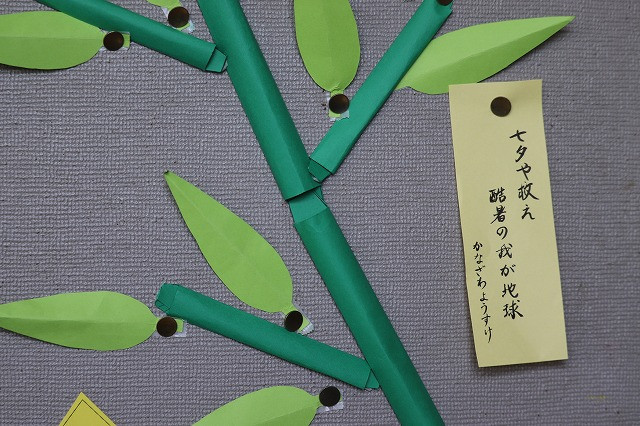 七夕や救え
酷暑の我が地球
かなざわようすけ